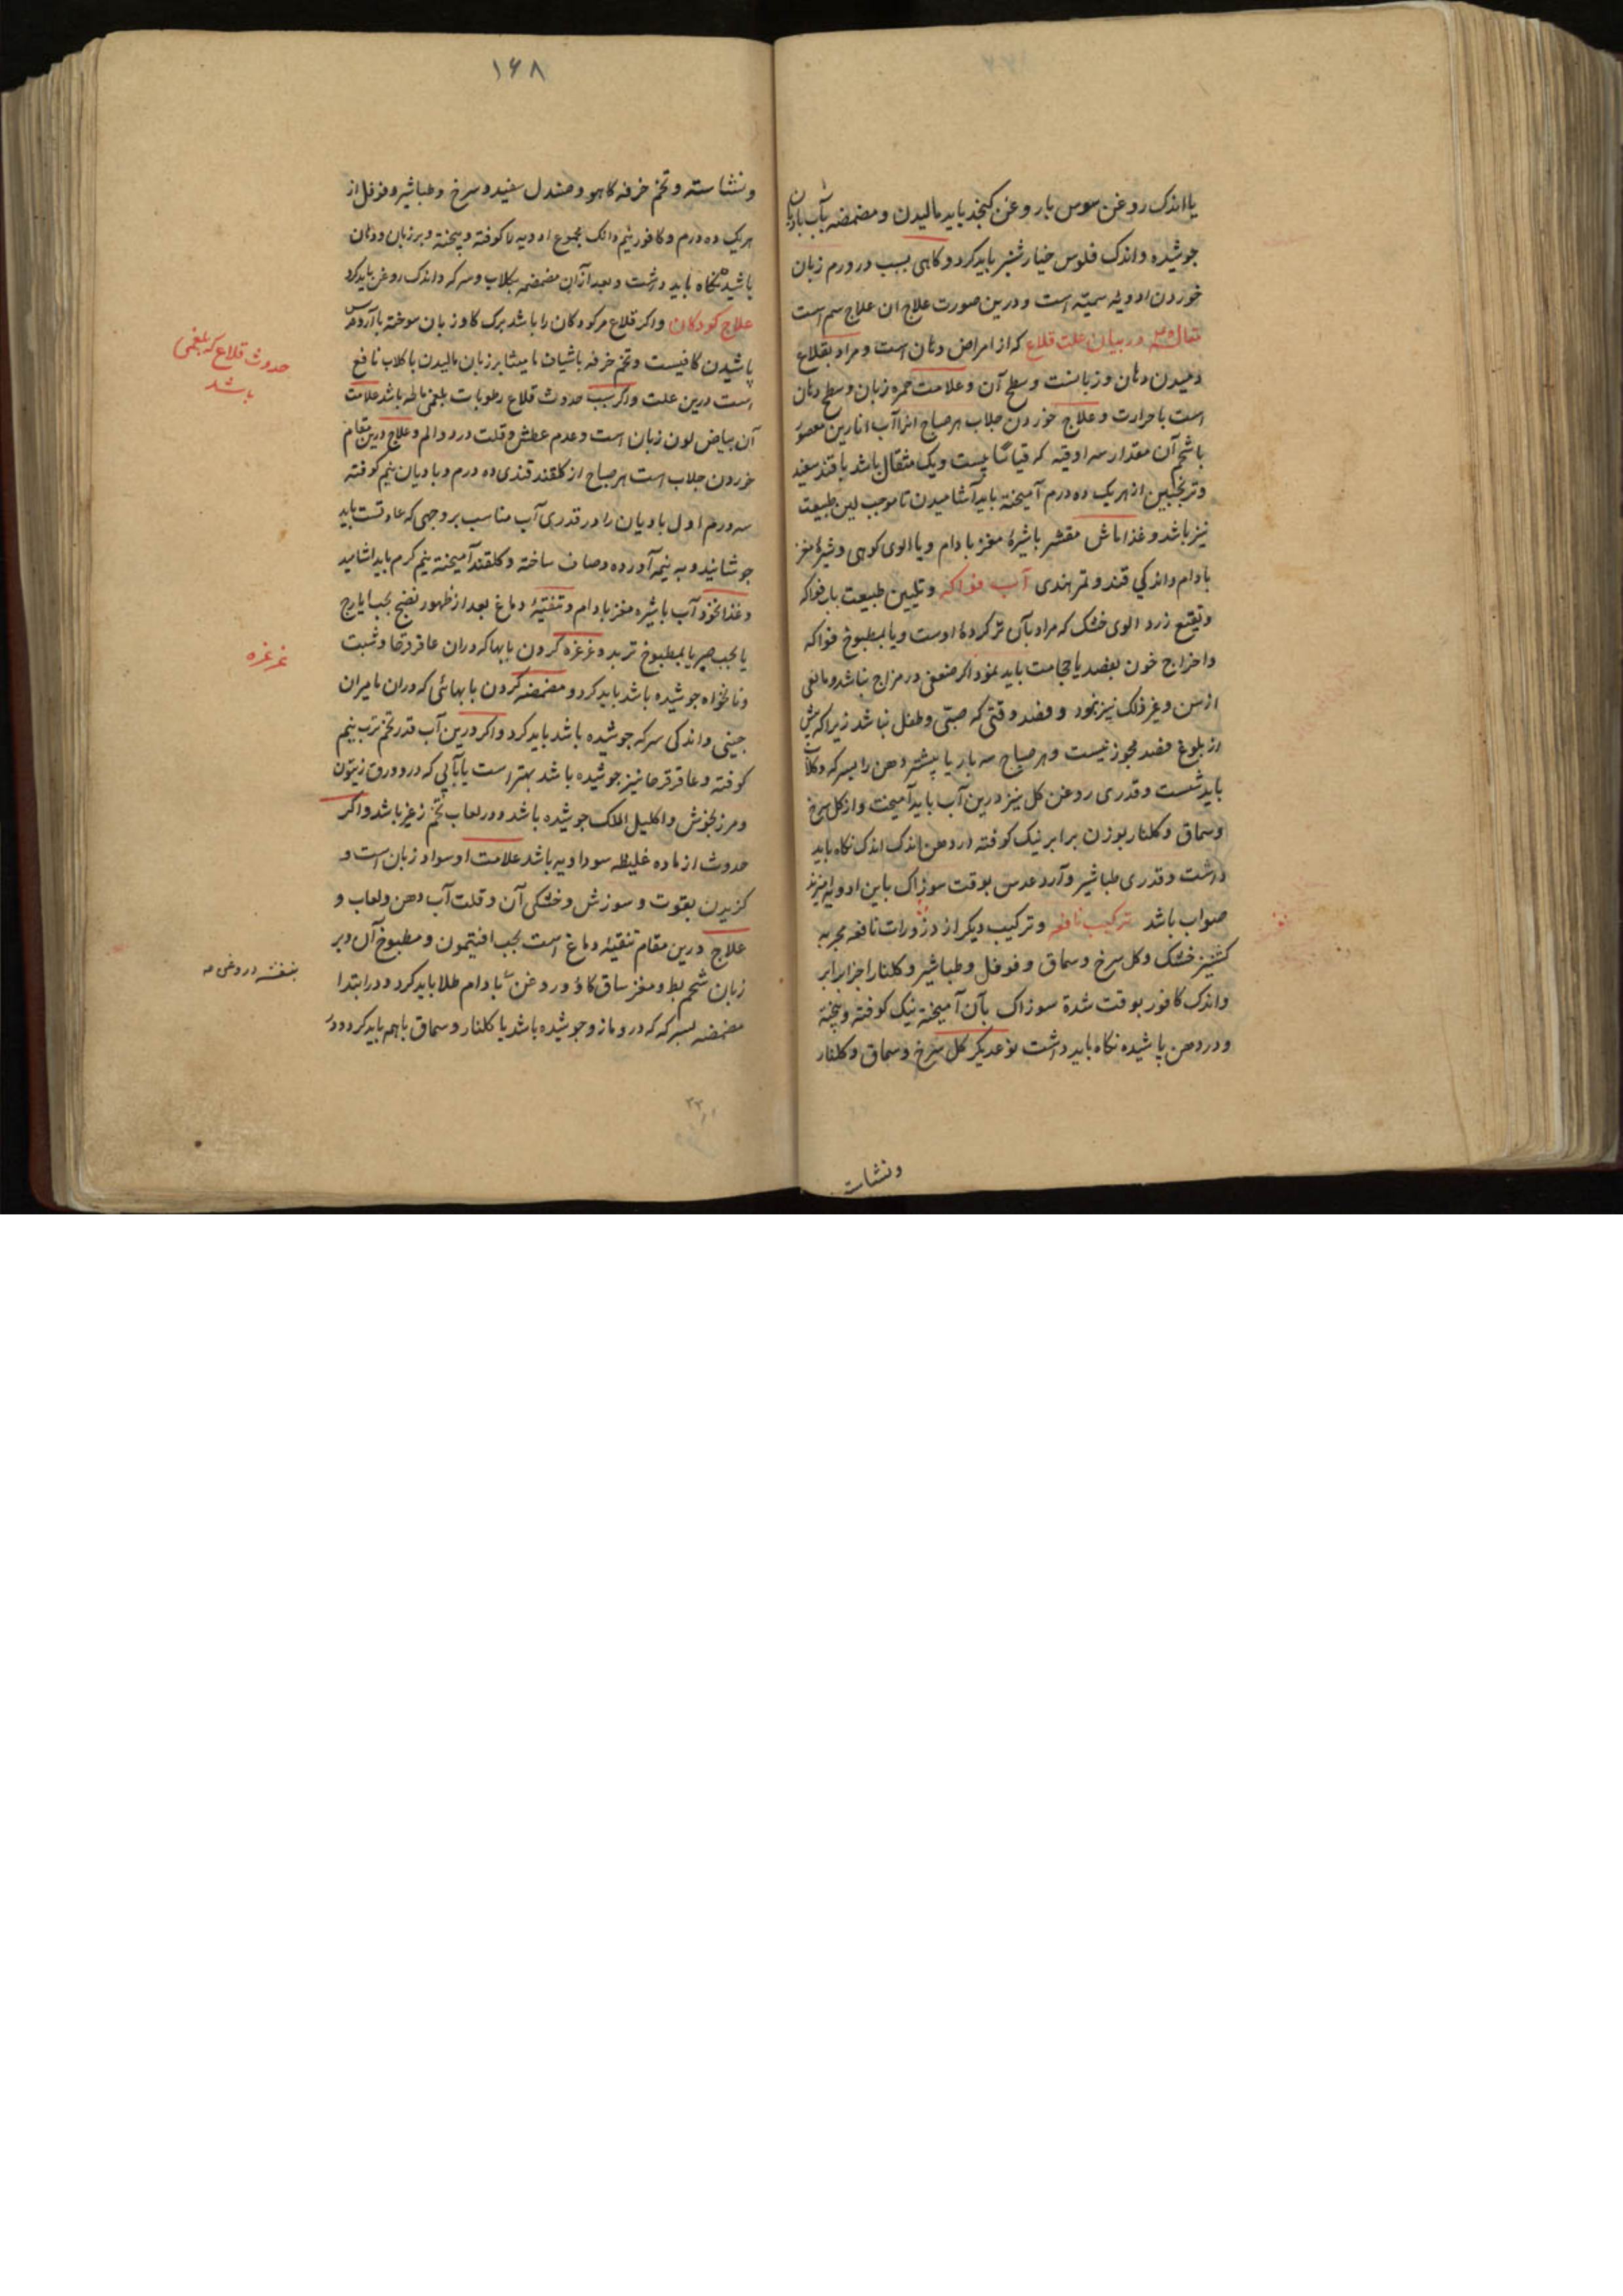 یا اندک روغن سوس یا روغن کنجد باید مالیدن و مضمضه بآب بادیان
جوشیده و اندک فلوس خیارشنبر باید کرد و کاهی بسبب در ورم زبان
خوردن ادویه سمیّه است و درین صورت علاج ان علاج سم است
در بیان علت قلاع که از امراض دهان است و مراد بقلاع
دمیدن دهان و زبانست و سطح آن و علامت حمره زبان و سطح دهان
است با حرارت و علاج خوردن جلاب هر صباح آب انارین معصور
با شحم آن مقدار سه اوقیه که قیاسًا بیست و یک مثقال باشد با قند سفید
و ترنجبین از هر یک ده درم آمیخته باید آشامیدن تا موجب لین طبیعت
نیز باشد و غذا ماش مقشر باشیرهٔ مغز بادام و یا الوی کوهی و شیرهٔ مغز
بادام و اندکی قند و تمر هندی آب فواکه و تلیین طبیعت باب فواکه
و نقیع زرد الوی خشک که مراد بآن تر کردهٔ اوست و یا بمطبوخ فواکه
و اخراج خون بفصد یا حجامت باید نمود اکر ضعفی در مزاج نباشد و مانعی
از سن و غیر ذلک نیز نبود و فصد وقتی که صبی و طفل نباشد زیرا که پیش
از بلوغ فصد مجوز نیست و هر صباح سه بار یا پیشتر دهن را بسرکه و کلاب
باید شست و قدری روغن کل نیز درین آب باید آمیخت و از کل سرخ
و سماق و کلنار بوزن برابر نیک کوفته در دهن اندک اندک نکاه باید
داشت و قدری طباشیر و آرد عدس بوقت سوزاک باین ادویه آمیزند
صواب باشد ترکیب نافعه و ترکیب دیکر از ذرورات نافعه مجربه
کشنیز خشک و کل سرخ و سماق و فوفل و طباشیر و کلنار اجزا برابر
و اندک کافور بوقت شدة سوزاک بآن آمیخته نیک کوفته و بیخته
و در دهن پاشیده نکاه باید داشت نوعدیکر کل سرخ و سماق و کلنار
ونشاسته
۱۶۸
و نشاسته و تخم خرفه کاهو و صندل سفید و سرخ و طباشیر و فوفل از
هر یک ده درم و کافور نیم دانک مجموع ادویه را کوفته و بیخته و بر زبان و دهان
پاشیده نکاه باید داشت و بعد از آن مضمضه بکلاب و سرکه و اندک روغن باید کرد
علاج کودکان و اکر قلاع مر کودکان را باشد برک کاوزبان سوخته با آرد عدس
پاشیدن کافیست و تخم خرفه باشیاف مامیثا بر زبان مالیدن با کلاب نافع
است درین علت و اکر سبب حدوث قلاع رطوبات بلغمی باشد علامت
آن بیاض لون زبان است و عدم عطش و قلت درد و الم و علاج درین مقام
خوردن جلاب است هر صباح از کلقند قندی ده درم و بادیان نیم کوفته
سه درم اول بادیان را در قدری آب مناسب بر وجهی که عادتست باید
جوشانید و به نیمه آورده و صاف ساخته و کلقند آمیخته نیم کرم باید اشامید
و غذا نخود آب باشیره مغز بادام و تنقیهٔ دماغ بعد از ظهور نضج بحب ایارج
یا بحب صبر یا بمطبوخ تربد و غرغره کردن بابها که دران عاقرقرحا و شبت
و نانخواه جوشیده باشد باید کرد و مضمضه کردن بابهائی که دران مامیران
چینی و اندکی سرکه جوشیده باشد باید کرد و اکر درین آب قدر تخم ترب نیم
کوفته و عاقرقرحا نیز جوشیده باشد بهتر است یا بآبی که درو ورق زیتون
و مرزنجوش و اکلیل الملک جوشیده باشد و در لعاب تخم باشد و اکر
حدوث از ماده غلیظه سوداویه باشد علامت او سواد زبان است و
کزیدن بقوت و سوزش و خشکی آن و قلت آب دهن و لعاب و
علاج درین مقام تنقیهٔ دماغ است بحب افتیمون و مطبوخ آن و بر
زبان شحم بط و مغز ساق کاؤ و روغن بادام طلا باید کرد و در ابتدا
مضمضه بسرکه که درو مازو جوشیده باشد یا کلنار و سماق باهم باید کرد و در
حدوث قلاع که بلغمی
باشد
غرغره
بنفشه